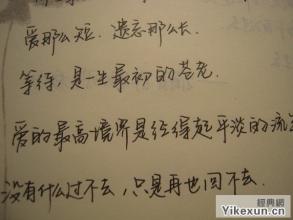 爱那么短.遗忘那么长.
等待,是一生最初的苍老.
爱的最高境界是经得起平淡的流
没有什么过不去,只是再也回不去.
经典网
Yikexun.cn